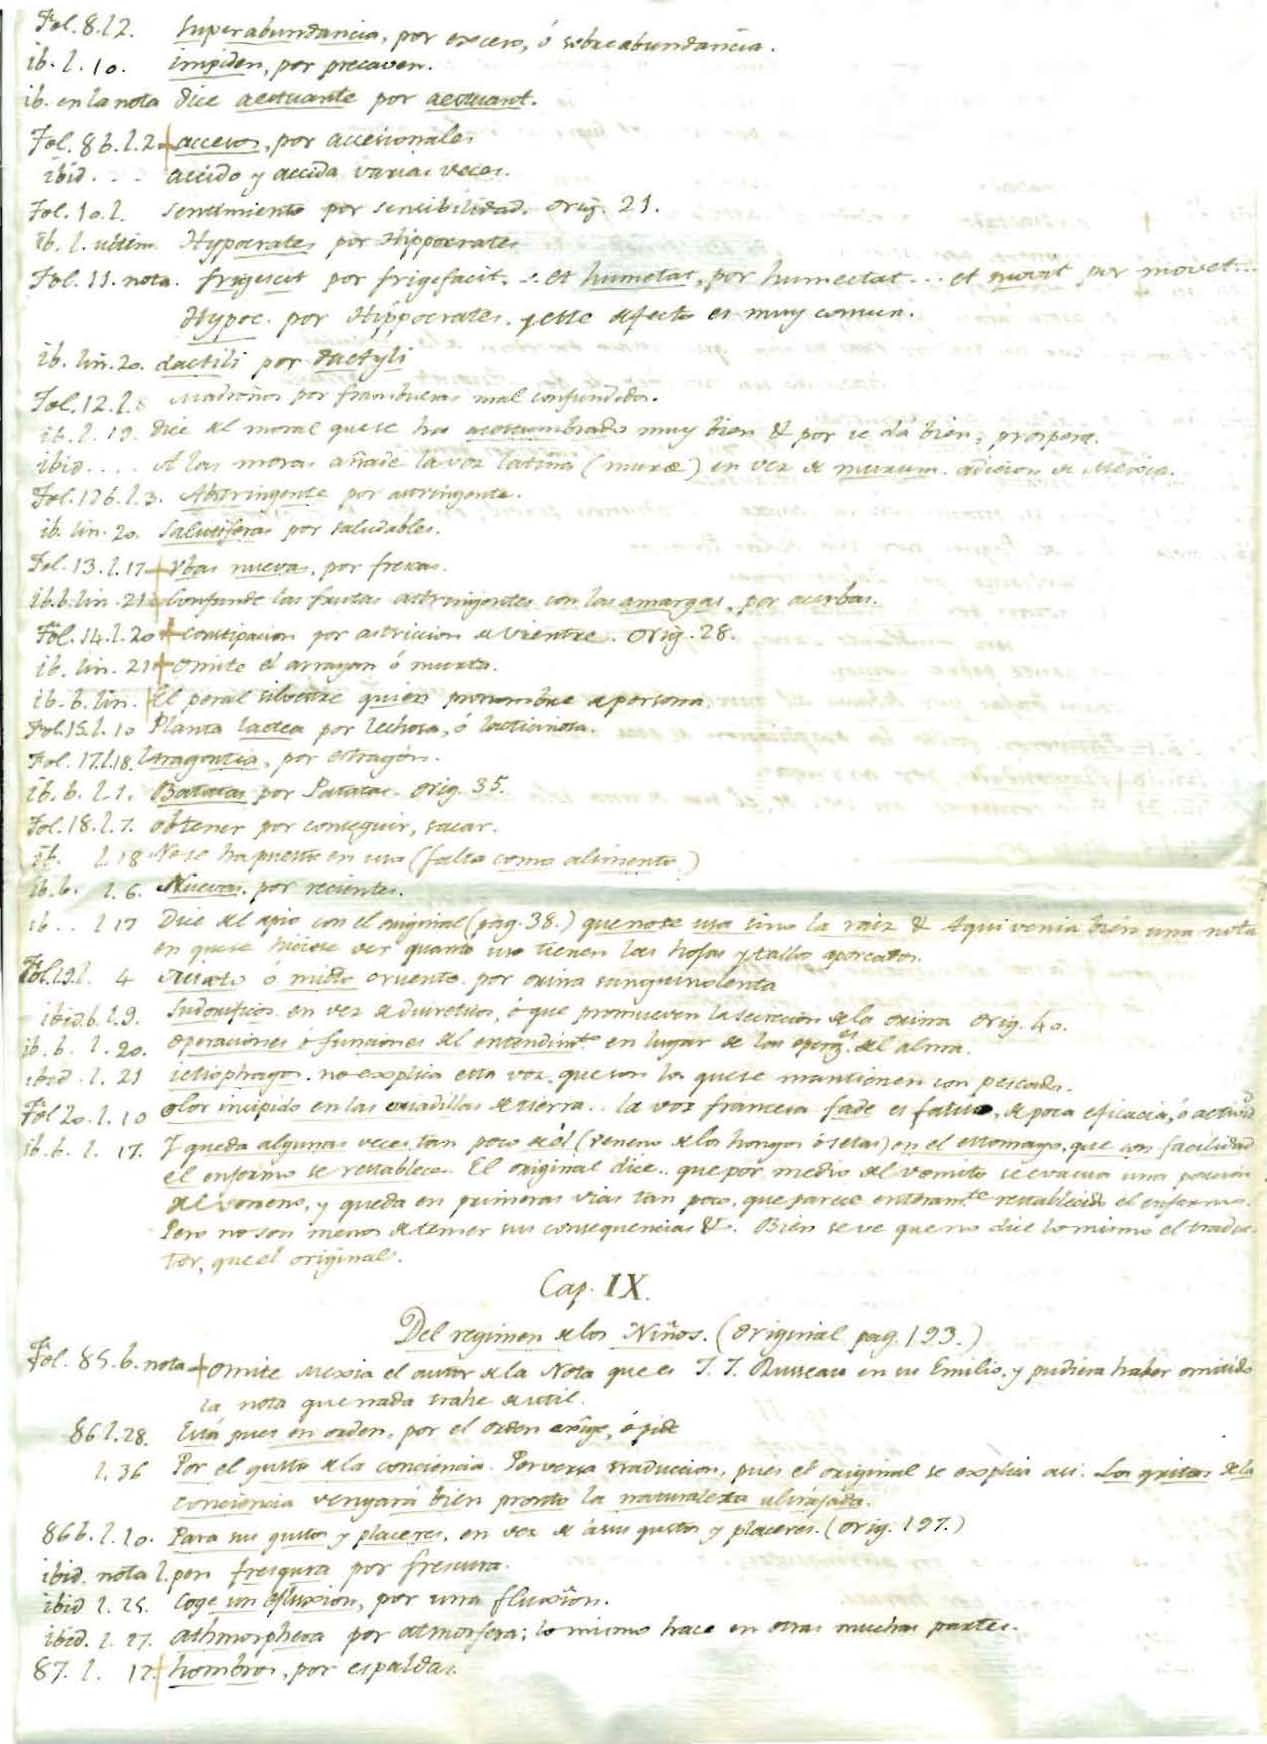 Fol. 8. l. 2. Superabundancia, por exceso, ó sobreabundancia.
ib. l. 10. impiden, por precaven.
ib. en la nota dice aestuante por aestuant.
Fol. 8 b. l. 2. accesos, por accesionales
ibid. . . accido y accida varias veces.
Fol. 10. l. Sentimiento por sensibilidad. Orig. 21.
ib. l. ultim. Hypocrates por Hippocrates
Fol. 11. nota. frigescit por frigefacit. .. et humetat, por humectat... et movit por movet...
Hypoc. por Hippocrates. y este defecto es muy comun.
ib. lin. 20. dactili por dactyli
Fol. 12. l. 8 Madroños por frambuesas mal confundidos.
ib. l. 19. Dice del moral que se ha acostumbrado muy bien & por se dá bien, prospera.
ibid.... A las moras añade la voz latina (muræ) en vez de murum. adicion de Mexia.
Fol. 12 b. l. 3. Abstringente por astringente.
ib. lin. 20. Salutiferas por saludables.
Fol. 13. l. 17 Vbas nuevas, por frescas.
ib. b. lin. 21 Confunde las frutas astringentes con las amargas, por acerbas.
Fol. 14. l. 20 Constipacion por astriccion de vientre. Orig. 28.
ib. lin. 21 Omite el arrayan ó murta.
ib. b. lin. El peral silvestre quien pronombre de persona.
Fol. 15. l. 10 Planta lactea por lechosa, ó lacticinosa.
Fol. 17. l. 18. Etragontia, por estragón.
ib. b. l. 1. Batatas por Patatas. Orig. 35.
Fol. 18. l. 7. obtener por conseguir, sacar.
ib. l. 18 No se ha puesto en uso (falta como alimento)
ib. b. l. 6. Nuevas. por recientes.
ib .. l 17 Dice del apio con el original (pag. 38.) que no se usa sino la raiz & Aqui venia bien una nota
en que se hiciese ver quanto uso tienen las hojas y tallos aporcados.
Fol. 19. l. 4 o micto cruento. por orina sanguinolenta
ibid. b. l. 9. Sudorificos en vez de diureticos, ó que promueven la secrecion de la orina Orig. 40.
ib. b. l. 20. Operaciones ó funciones del entendimto. en lugar de las operaes. del alma.
ibid. l. 21 ictiophagos. no explica esta voz. que son los que se mantienen con pescado.
Fol 20. l. 10 olor insipido en las criadillas de tierra.. la voz francesa fade es fatuo, de poca eficacia, ó activid
ib. b. l. 17. Y queda algunas veces tan poco de él (veneno de los hongos ó setas) en el estomago, que con facilidad
el enfermo se restablece. El original dice.. que por medio del vomito se evacua una porcion
del veneno, y queda en primeras vias tan poco, que parece enteramte. restablecido el enfermo.
Pero no son menos de temer sus consequencias &. Bien se ve que no dice lo mismo el traduc-
tor, que el original.
Cap. IX.
Del regimen de los Niños. (Original pag. 193.)
Fol. 85. b. nota Omite Mexia el autor de la Nota que es J. J. Russeau en su Emilio, y pudiera haber omitido
la nota que nada trahe de util.
86 l. 28. Está pues en orden, por el orden exige, ó pide
l. 36 Por el gusto de la conciencia. Perversa traduccion, pues el original se explica asi. Los gritos de la
conciencia vengará bien pronto la naturaleza ultrajada.
86 b. l. 10. Para sus gustos y placeres, en vez de á sus gustos y placeres. (Orig. 197.)
ibid. nota l. pen fresqura por frescura.
ibid l. 25. Coge un efluxion, por una fluxîon.
ibid. l. 27. athmorphera por atmosfera; lo mismo hace en otras muchas partes.
87. l. 12. hombros, por espaldas.